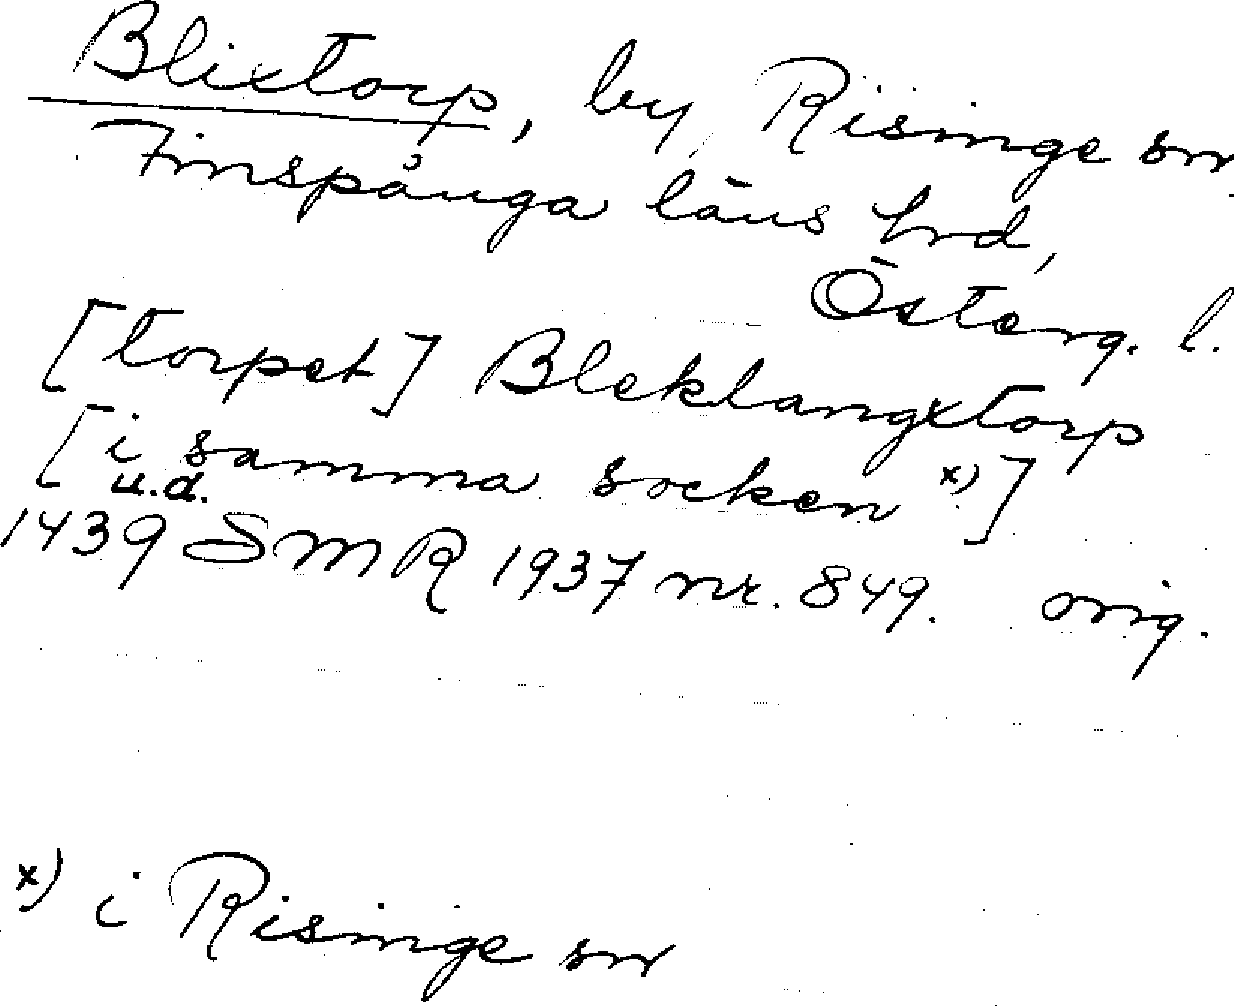 Blixtorp, by, Risinge sn
Finspånga läns hrd,
Österg. l.
[torpet] Bleklangxtorp
[i samma socken x)]
u.d.
1439 SMR 1937 nr. 849. orig.
x) i Risinge sn